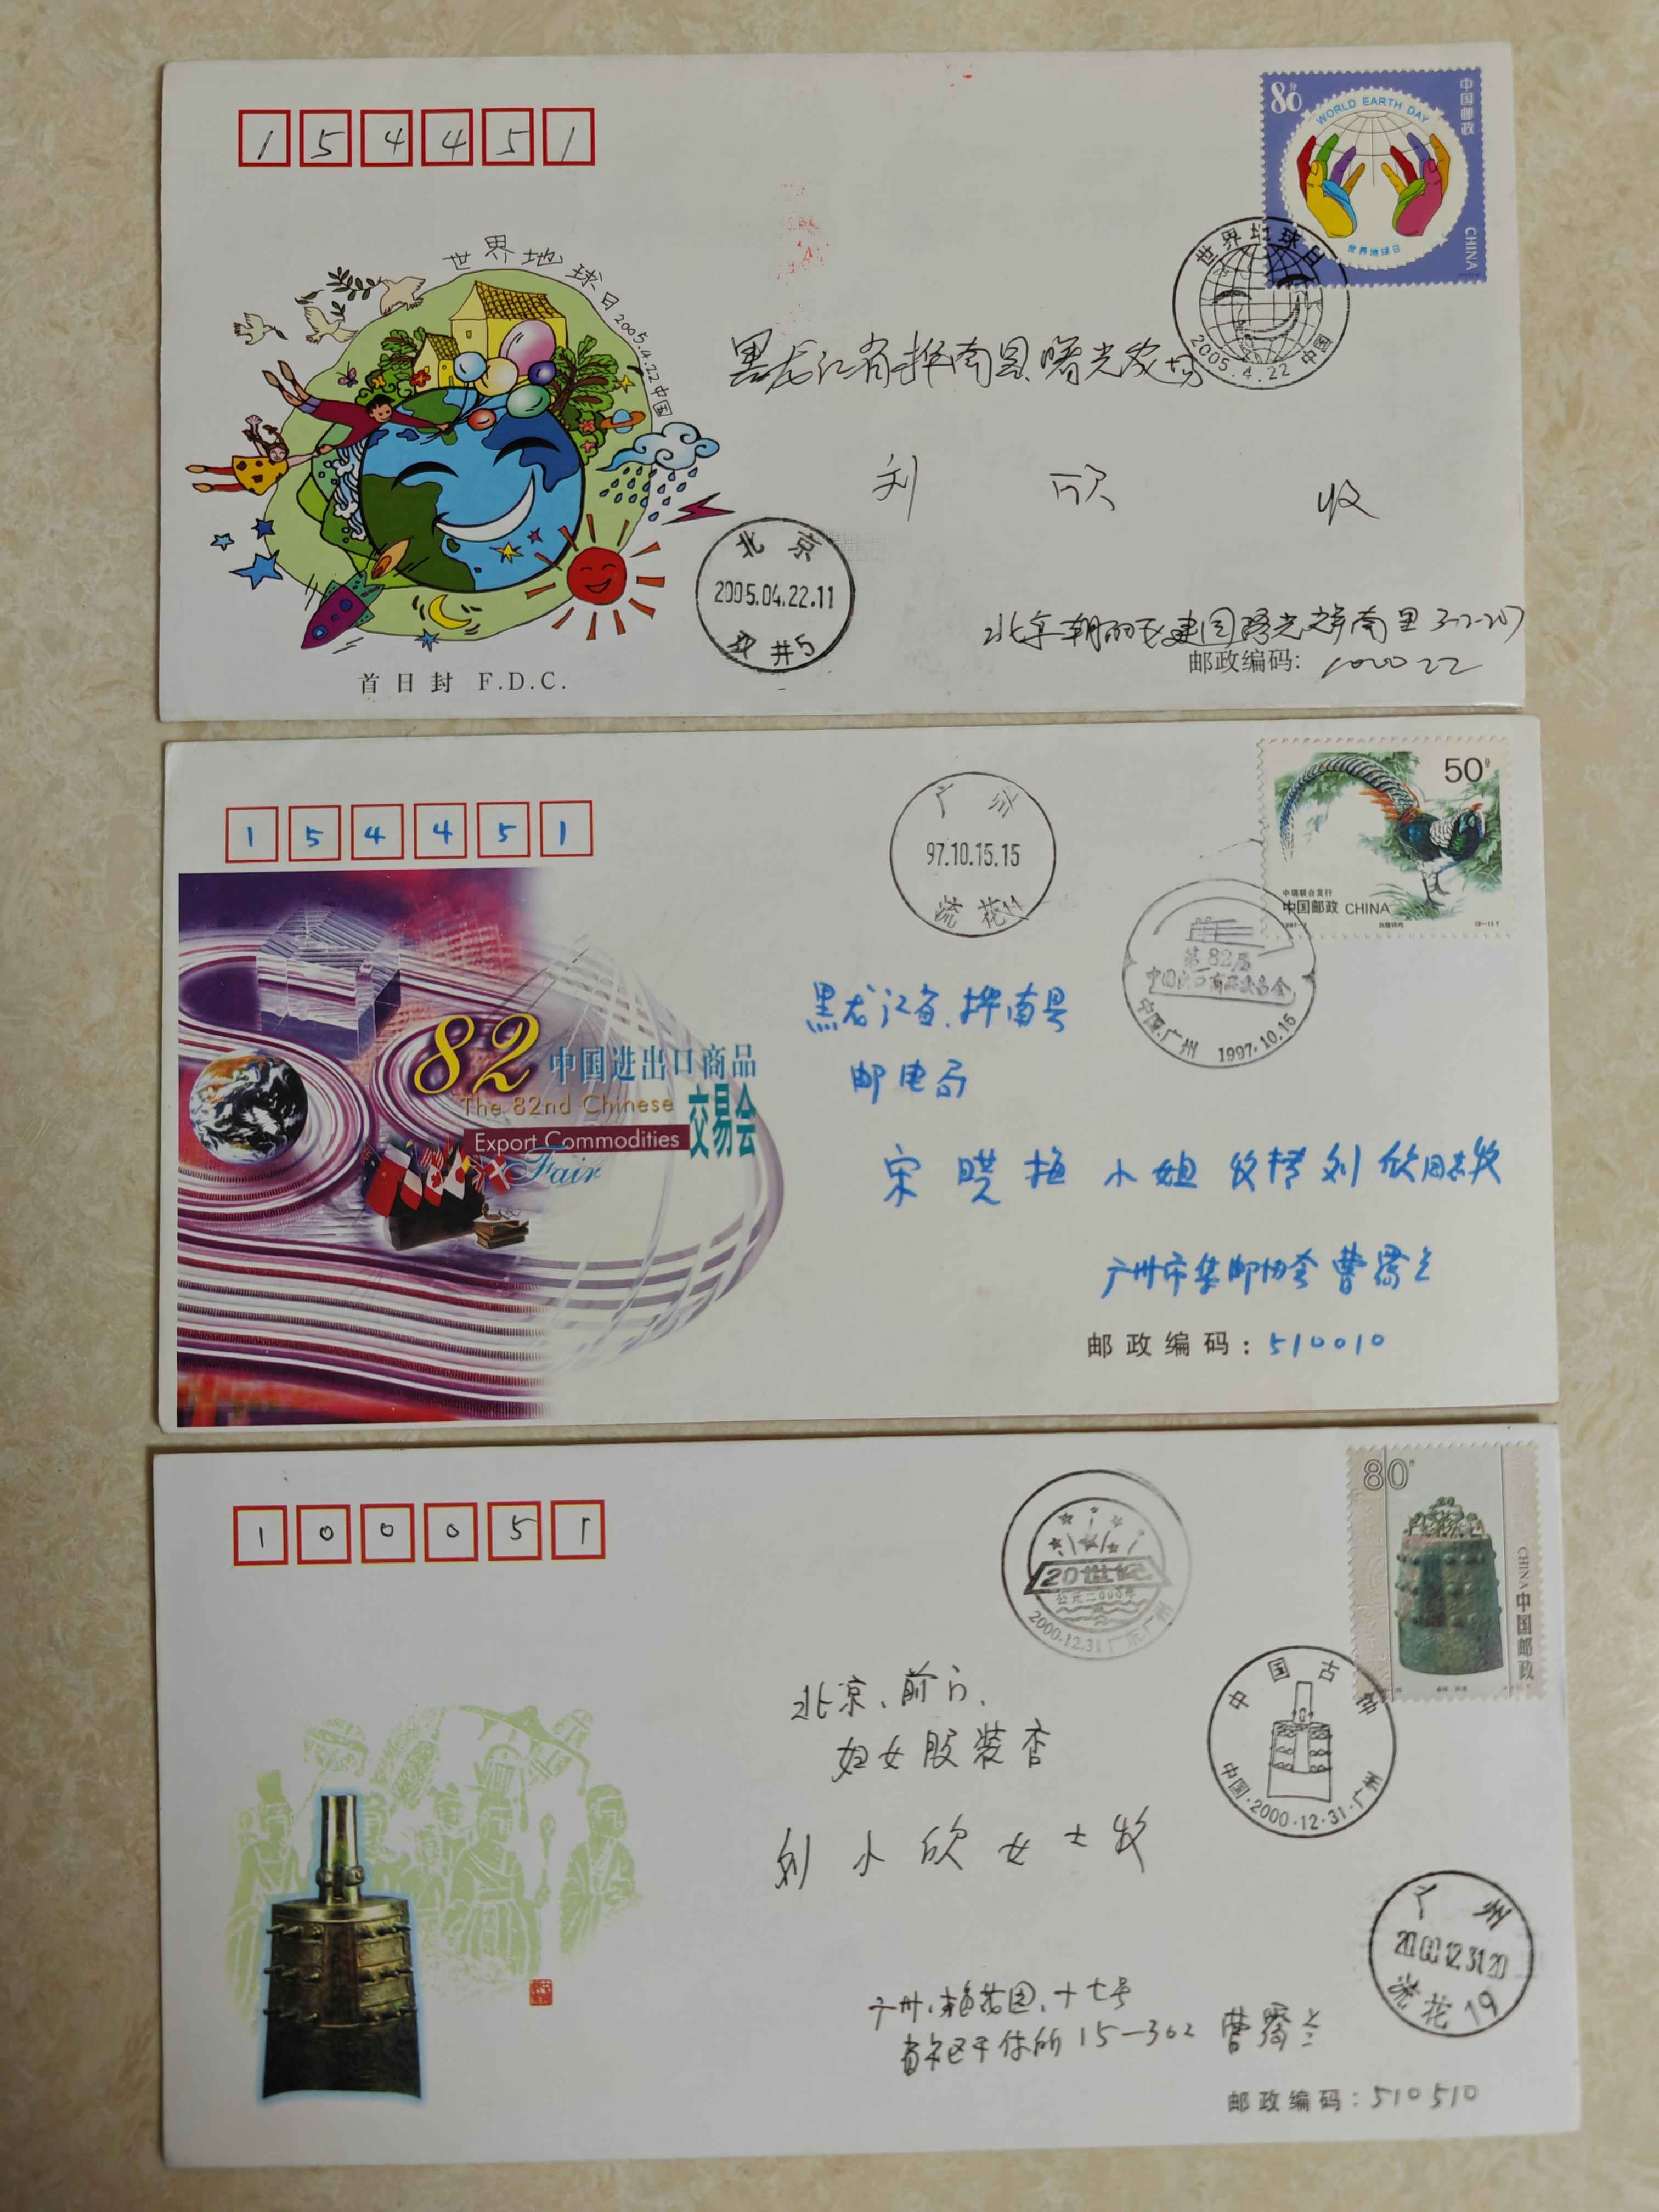 154451
80分
中国邮政
WORLD EARTH DAY
世界地球日
CHINA
世界地球日
2005.4.22 中国
世界地球日 2005.4.22 中国
黑龙江省桦南县曙光农场
刘 欣 收
北京
2005.04.22.11
井5
北京朝阳区建国路光辉南里
邮政编码: 100022
首日封 F.D.C.
154451
50分
中瑞联合发行
中国邮政 CHINA
广州
97.10.15.15
流花11
第82届
中国出口商品交易会
中国.广州 1997.10.15
82 中国进出口商品
交易会
The 82nd Chinese
Export Commodities
Fair
黑龙江省、桦南县
邮电局
宋晓梅小姐收转刘欣同志收
广州市集邮协会 曹
邮政编码: 510010
100051
80分
CHINA 中国邮政
20世纪
公元二000年
2000.12.31 广东.广州
中国古钟
中国·2000·12·31·广州
北京、前门、
妇女服装店
刘小欣女士收
广州
2000.12.31.20
流花19
广州、梅花园、十七号
15-302 曹
邮政编码: 510510